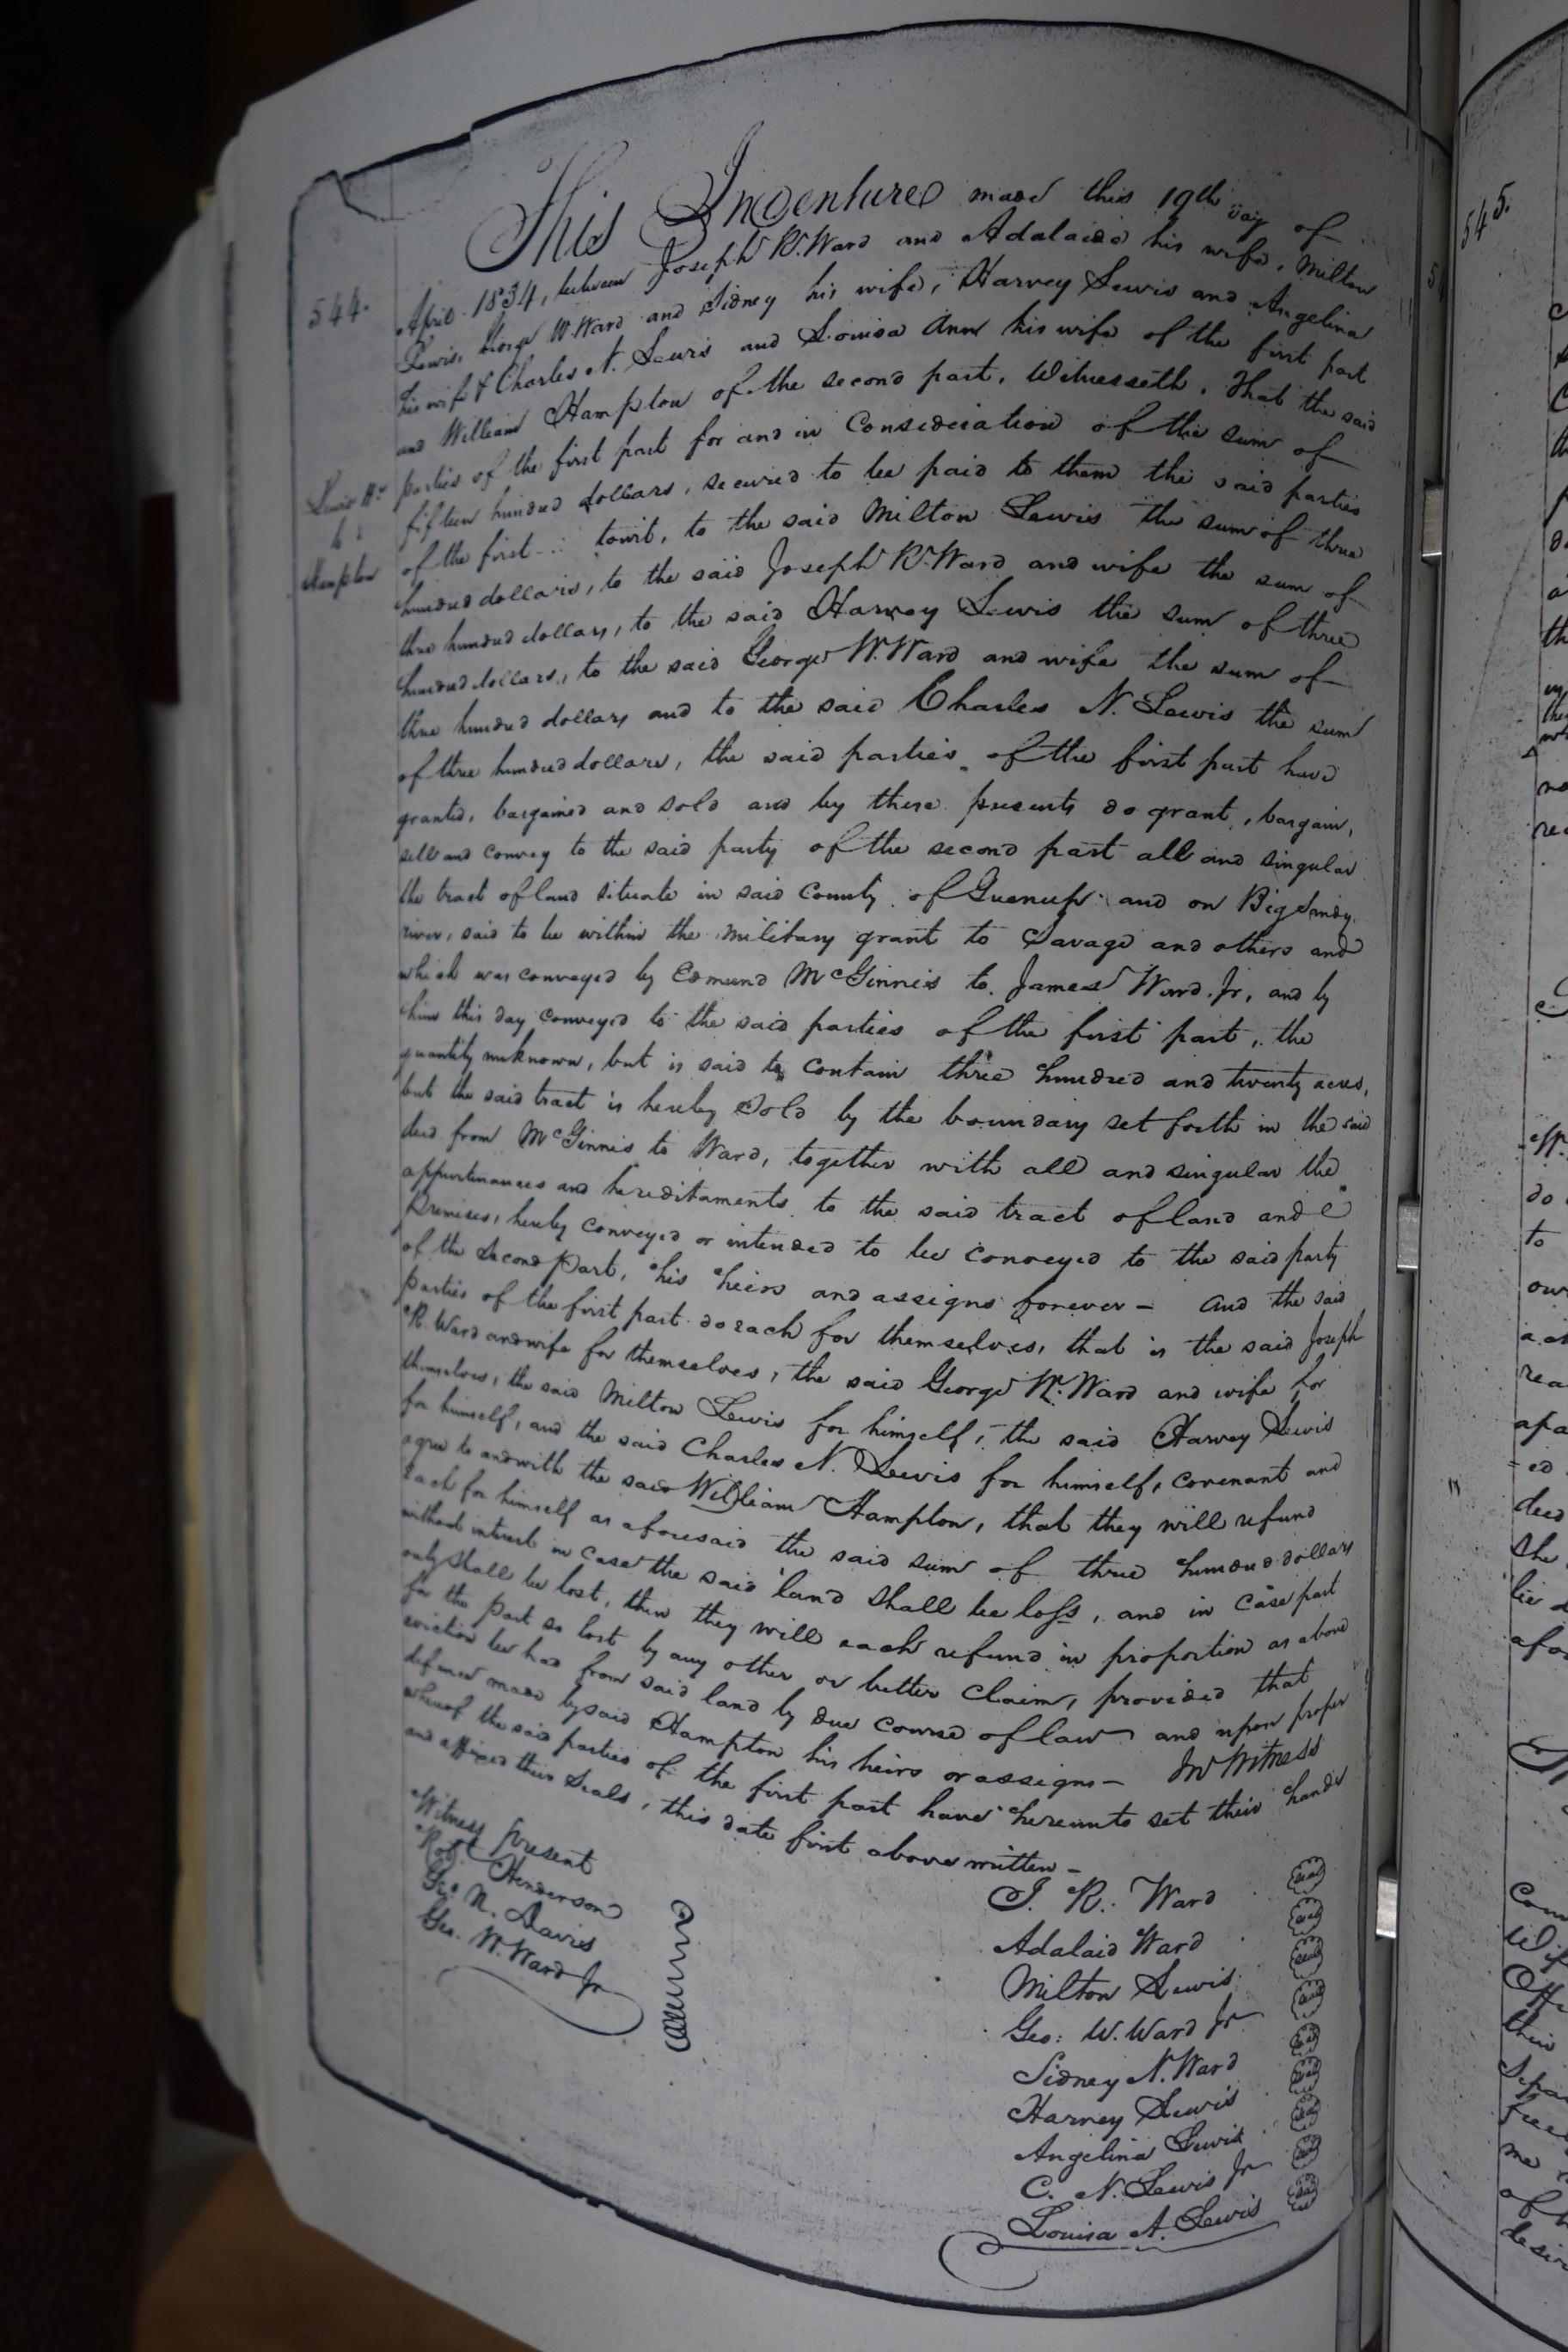 544.
Lewis &c
to
Hampton
This Indenture made this 19th day of
April 1834, between Joseph R. Ward and Adalaide his wife, Milton
Lewis, George W. Ward and Sidney his wife, Harvey Lewis and Angelina
his wife & Charles N. Lewis and Louisa Ann his wife of the first part
and William Hampton of the second part, Witnesseth. That the said
parties of the first part for and in Consideration of the sum of
fifteen hundred dollars, secured to be paid to them the said parties
of the first towit, to the said Milton Lewis the sum of three
hundred dollars, to the said Joseph R. Ward and wife the sum of
three hundred dollars, to the said Harvey Lewis the sum of three
hundred dollars, to the said George W. Ward and wife the sum of
three hundred dollars and to the said Charles N. Lewis the sum
of three hundred dollars, the said parties of the first part have
granted, bargained and sold and by these presents do grant, bargain,
sell and convey to the said party of the second part all and singular
the tract of land situate in said County of Greenup and on Big Sandy
river, said to be within the military grant to Savage and others and
which was conveyed by Edmund McGinnis to James Ward Jr, and by
him this day conveyed to the said parties of the first part, the
quantity unknown, but is said to contain three hundred and twenty acres,
but the said tract is hereby Sold by the boundary set forth in the said
deed from McGinnis to Ward, together with all and singular the
appurtenances and hereditaments to the said tract of land and
Premises, hereby conveyed or intended to be conveyed to the said party
of the Second Part, his heirs and assigns forever – And the said
parties of the first part do each for themselves, that is the said Joseph
R. Ward and wife for themselves, the said George W. Ward and wife for
themselves, the said Milton Lewis for himself, the said Harvey Lewis
for himself, and the said Charles N. Lewis for himself, covenant and
agree to and with the said William Hampton, that they will refund
each for himself as aforesaid the said sum of three hundred dollars
without interest in case the said land shall be loss, and in case part
only shall be lost, then they will each refund in proportion as above
for the part so lost by any other or better Claim, provided that
eviction be had from said land by due course of law and upon proper
defence made by said Hampton his heirs or assigns – In Witness
whereof the said parties of the first part have hereunto set their hands
and affixed their Seals, this date first above written –
Witness present
Robt Henderson
Geo N. Davis
Geo. W. Ward Jr
J. R. Ward seal
Adalaid Ward seal
Milton Lewis seal
Geo: W. Ward Jr seal
Sidney N. Ward seal
Harvey Lewis seal
Angelina Lewis seal
C. N. Lewis Jr seal
Louisa A. Lewis seal
545.